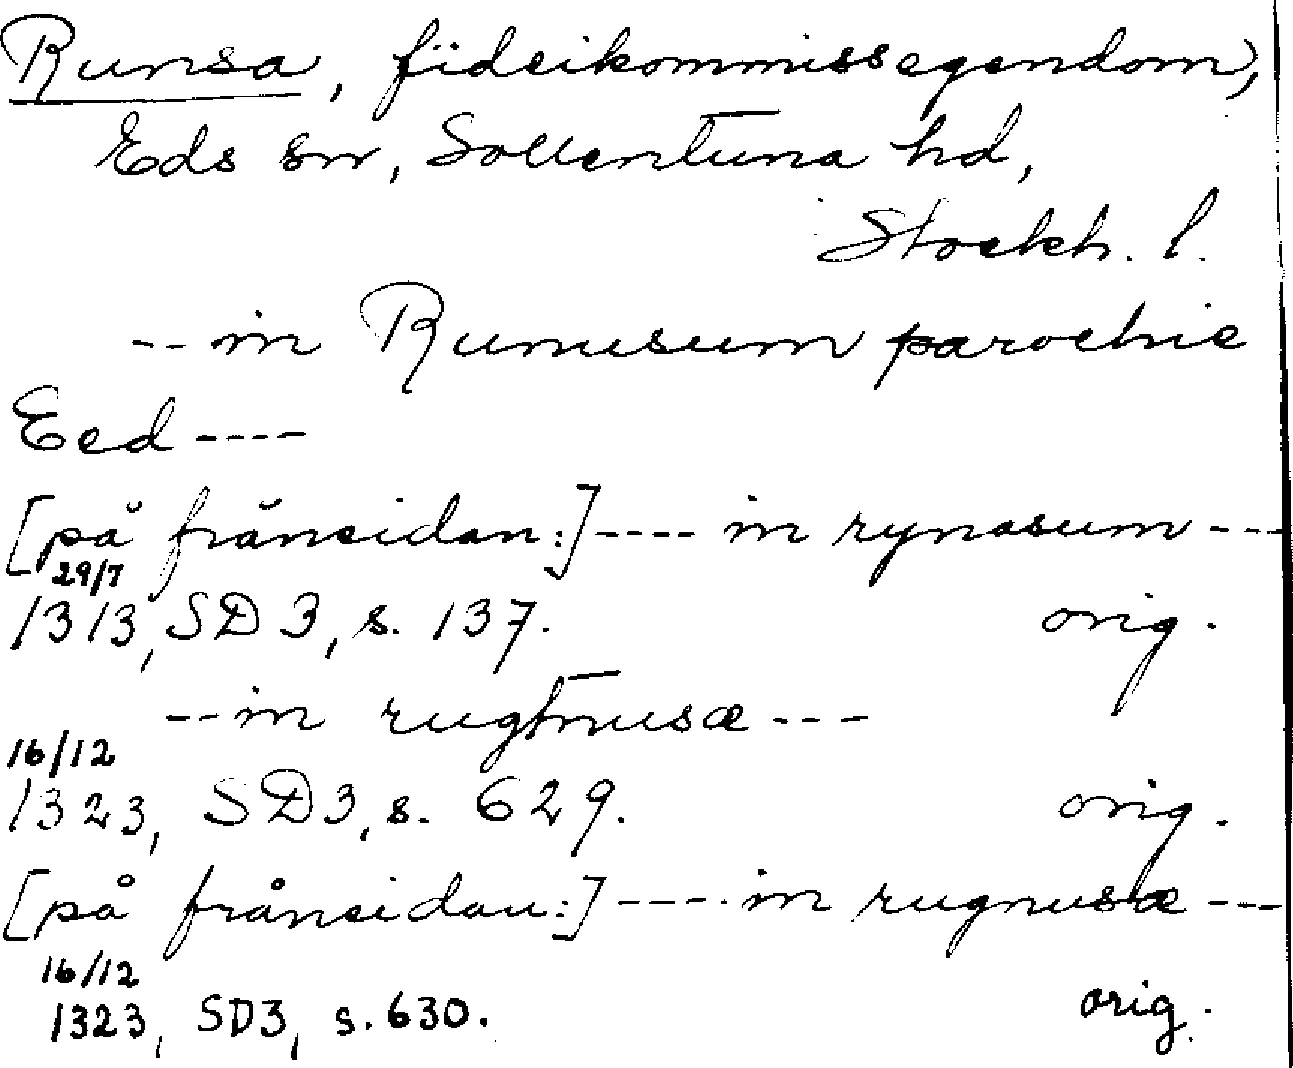 Runsa, fideikommissegendom,
Eds sn, Sollentuna hd,
Stockh. l.
-- in Rumusum parochie
Eed ----
[på frånsidan:] ---- in rynasum ---
29/7
1313, SD 3, s. 137. orig.
-- in rughnusæ ---
16/12
1323, SD3, s. 629. orig.
[på frånsidan:] ---- in rugnusæ ---
16/12
1323, SD3, s. 630. orig.